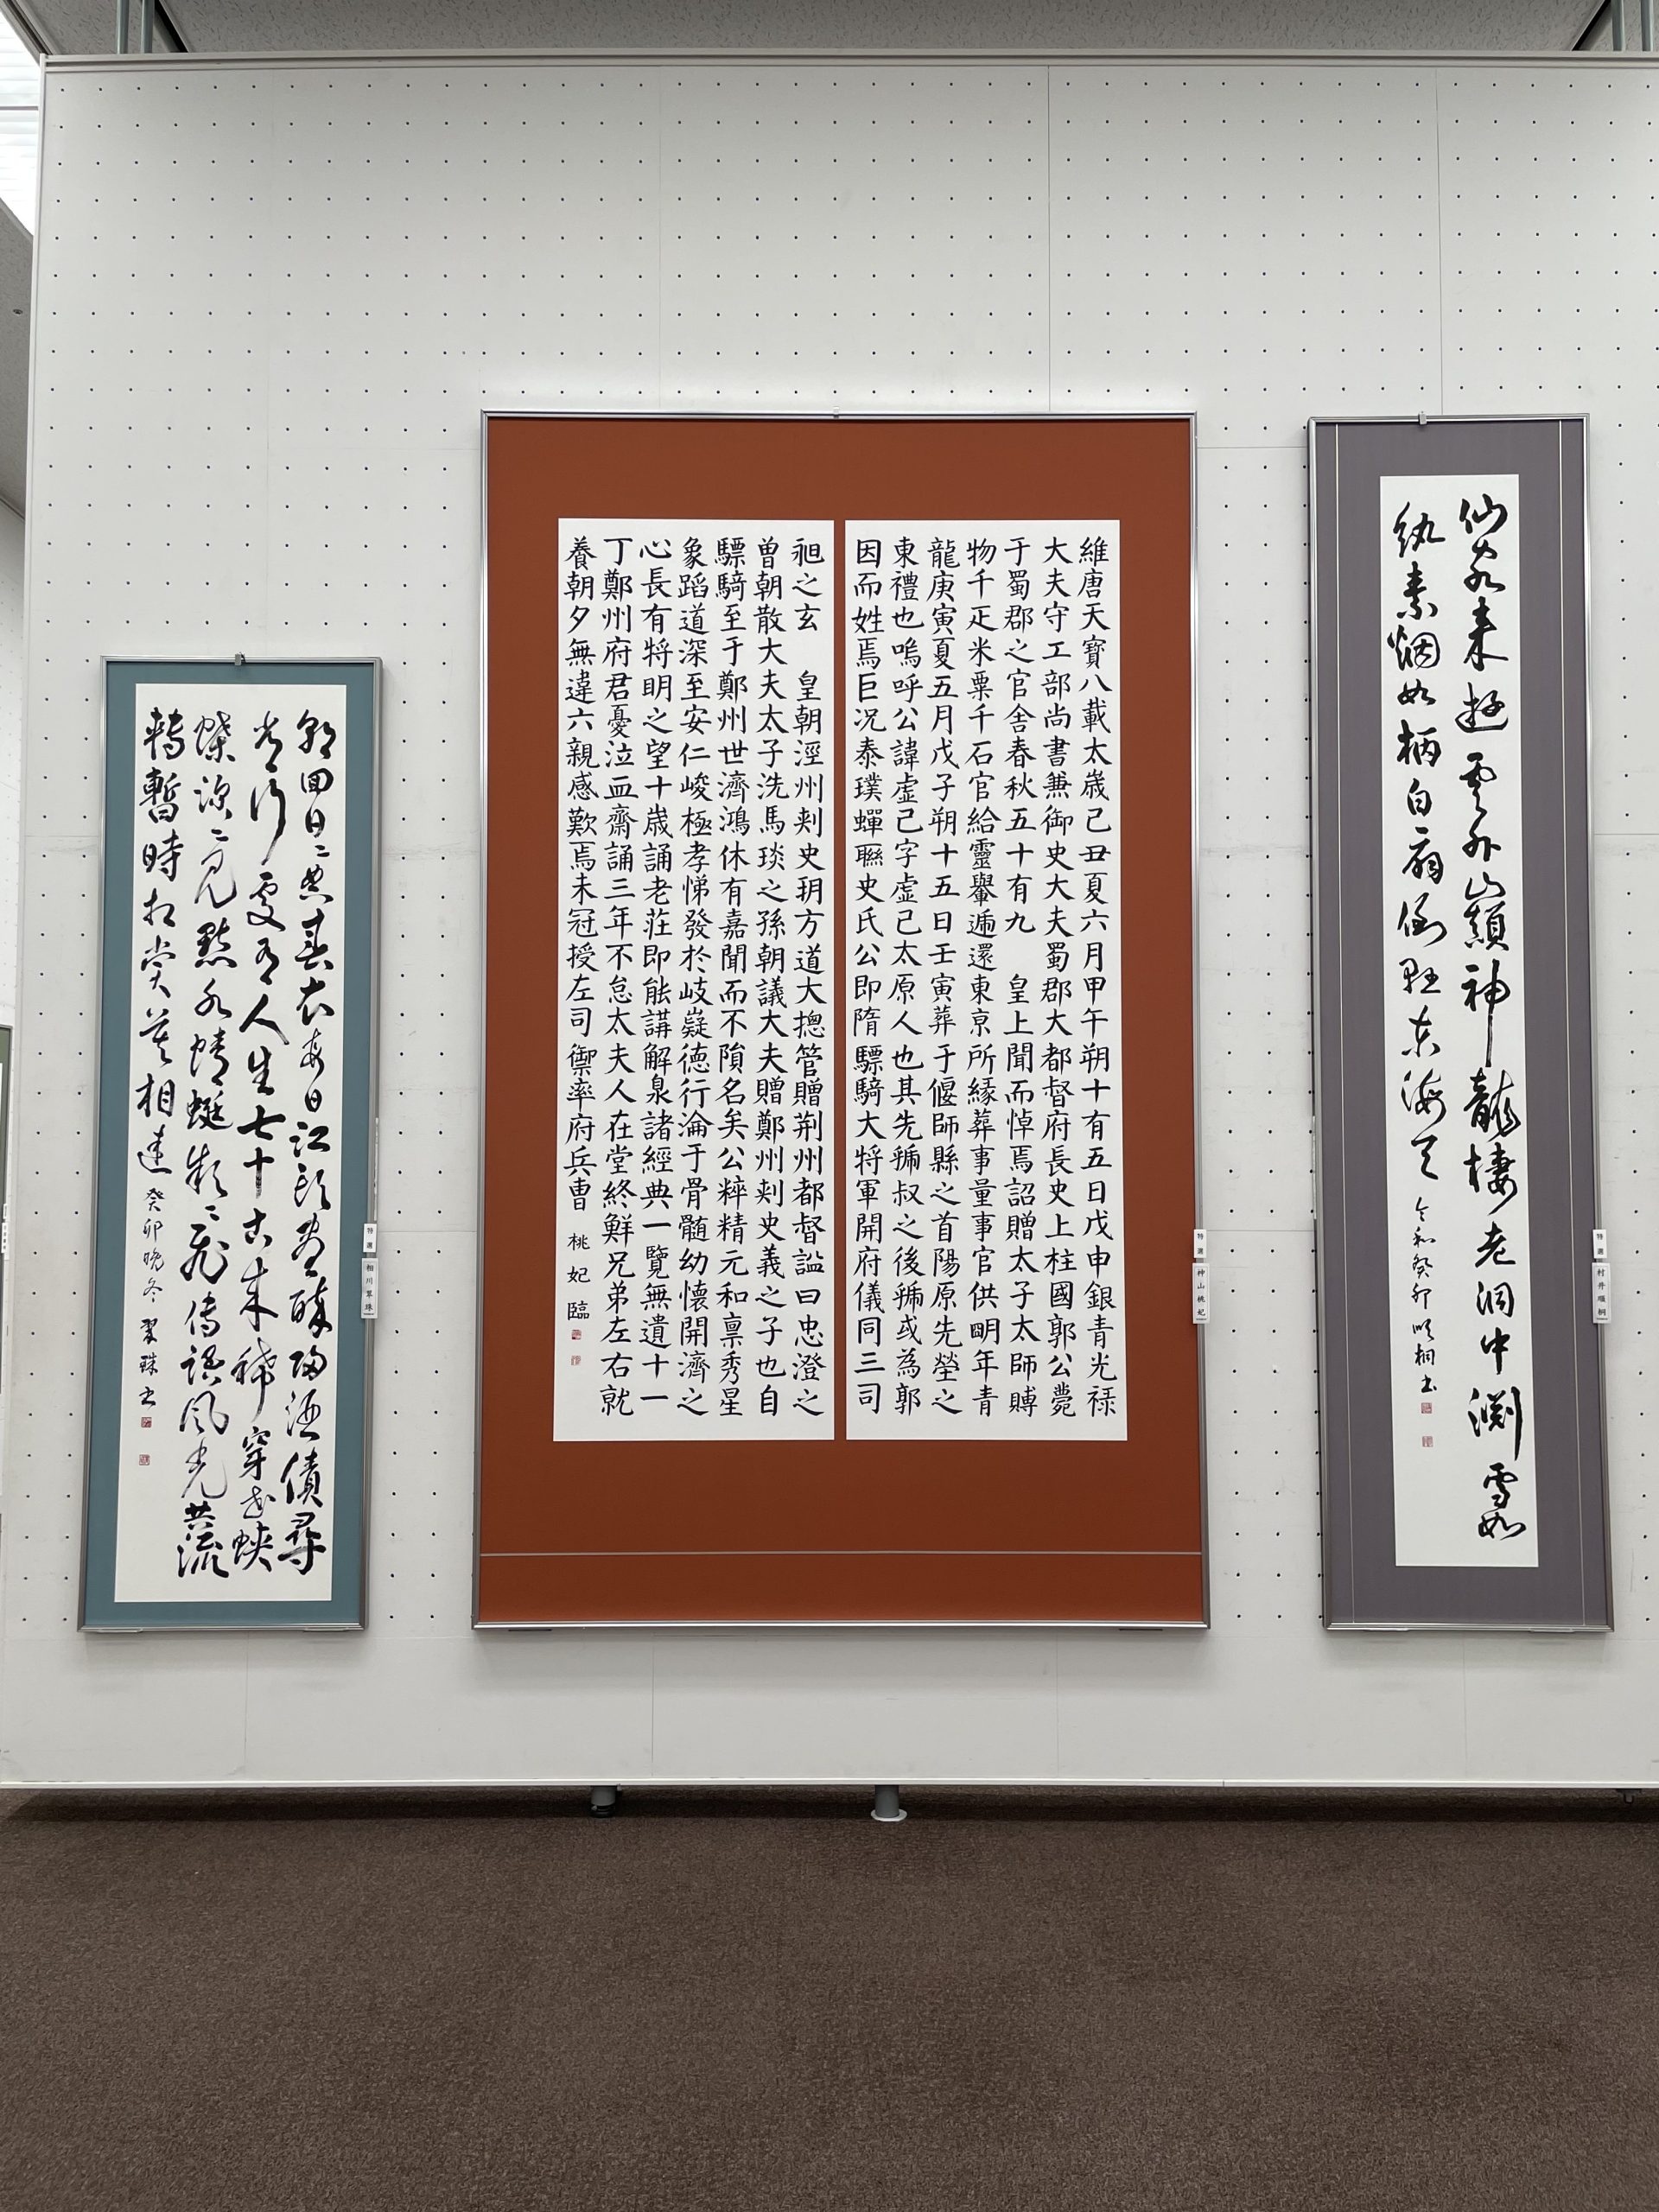 仙客来遊雲外巓神龍棲老洞中淵雪如
紈素烟如柄白扇倒懸東海天 令和癸卯 順桐書
特選
村井順桐
維唐天寶八載太歳己丑夏六月甲午朔十有五日戊申銀青光禄
大夫守工部尚書兼御史大夫蜀郡大都督府長史上柱國郭公薨
于蜀郡之官舎春秋五十有九　皇上聞而悼焉詔贈太子太師賻
物千疋米粟千石官給靈轝逓還東京所縁葬事量事官供明年青
龍庚寅夏五月戊子朔十五日壬寅葬于偃師縣之首陽原先塋之
東禮也嗚呼公諱虚己字虚己太原人也其先虢叔之後虢或為郭
因而姓焉巨况泰璞蟬聮史氏公即隋驃騎大将軍開府儀同三司
昶之玄　皇朝涇州刾史玥方道大摠管贈荆州都督謚曰忠澄之
曽朝散大夫太子洗馬琰之孫朝議大夫贈鄭州刾史義之子也自
驃騎至于鄭州世濟鴻休有嘉聞而不隕名矣公粹精元和禀秀星
象蹈道深至安仁峻極孝悌發於岐嶷徳行淪于骨髄幼懐開濟之
心長有将明之望十歳誦老荘即能講解泉諸經典一覽無遺十一
丁鄭州府君憂泣血齋誦三年不怠太夫人在堂終鮮兄弟左右就
養朝夕無違六親感歎焉未冠授左司禦率府兵曹 桃妃臨
特選
神山桃妃
朝回日々典春衣毎日江頭盡醉帰酒債尋
常行處有人生七十古来稀穿花蛺
蝶深々見點水蜻蜓欵々飛傳語風光共流
轉暫時相賞莫相違 癸卯晩冬 翠珠書
特選
相川翠珠